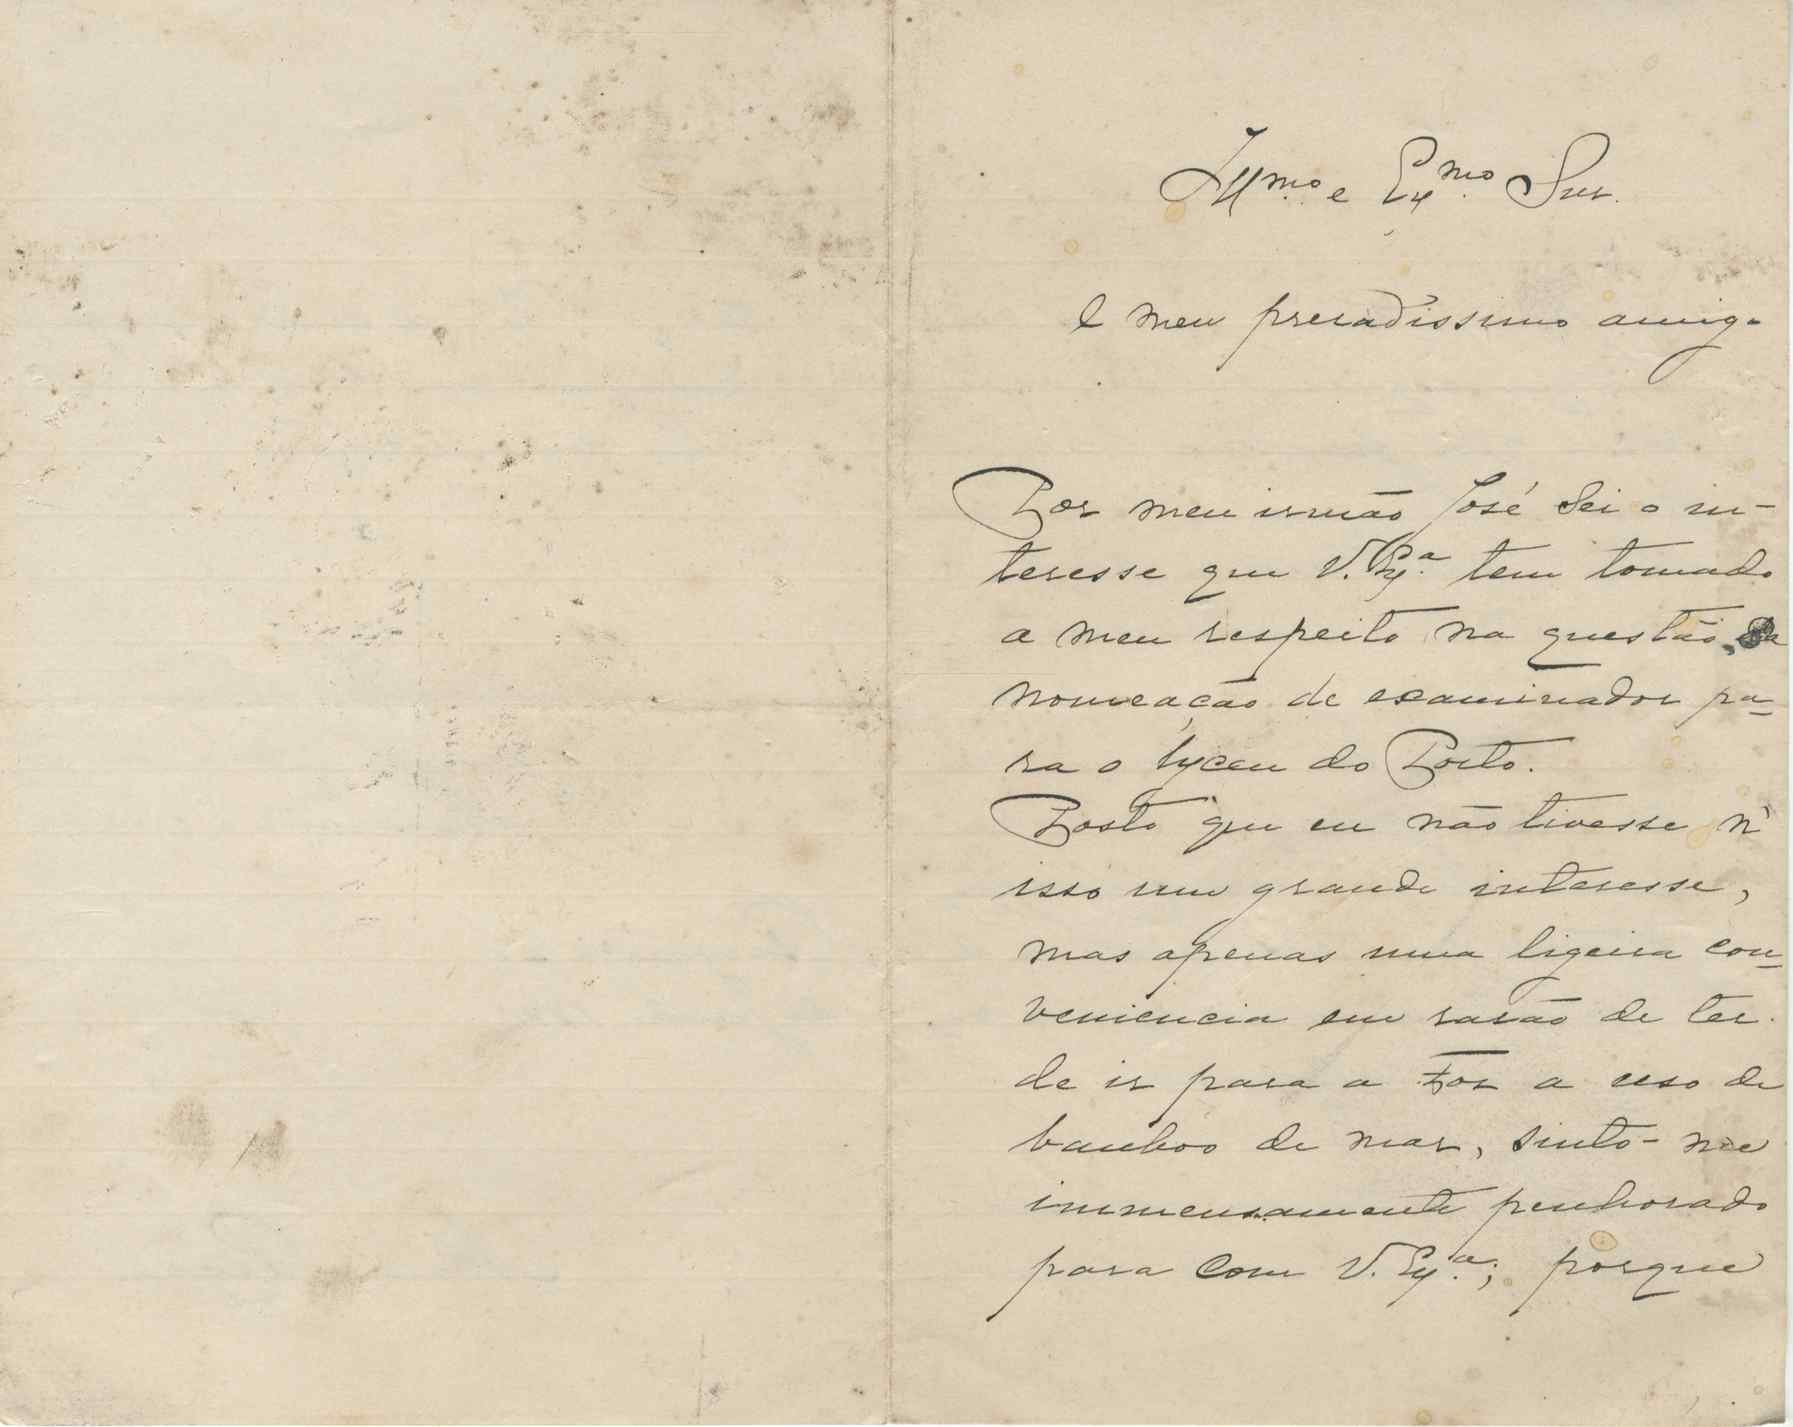 Ill.mo e Ex.mo Snr.
e meu presadissimo amigo
Por meu irmão José sei o in-
teresse que V. Ex.a tem tomado
a meu respeito na questão da
nomeação de examinador pa-
ra o lyceu do Porto.
Posto que eu não tivesse n'
isso um grande interesse,
mas apenas uma ligeira con-
veniencia em rasão de ter
de ir para a Foz a uso de
banhos de mar, sinto-me
immensamente penhorado
para com V. Ex.a; porque